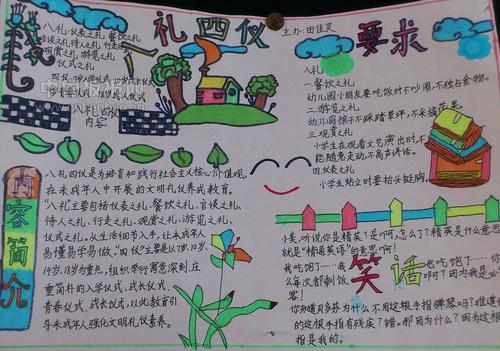 八礼四仪
主办:田佳灵
要求
八礼:仪表之礼、餐饮之礼
言谈之礼、待人之礼、行走之礼
观赏之礼、游览之礼
仪式之礼
四仪:7岁入学仪式
青春仪式、18岁成人仪式
八礼四仪
内容
八礼
一.餐饮之礼
幼儿园小朋友要吃饭时不吵闹,不独占食物。
二.游览之礼
幼儿园孩子不踩踏草坪,不采摘花果。
三.观赏之礼
小学生在观看文艺演出时,不
能随意走动,不高声讲话。
四.仪表之礼
小学生站立时要抬头挺胸。
内容简介
八礼四仪是为培育和践行社会主义核心价值观,
在未成年人中开展的文明礼仪养成教育。
“八礼”主要包括仪表之礼、餐饮之礼、言谈之礼、
待人之礼、行走之礼、观赏之礼、游览之礼、
仪式之礼。从生活细节入手,让未成年人
易懂易学易做。“四仪”主要是以7岁、10岁、
14岁、18岁为重点,组织举行寓意深刻、庄
重简朴的入学仪式、成长仪式、
青春仪式、成长仪式,以此教育引
导未成年人强化文明礼仪素养。
笑话
小美,听说你是精英?是啊,怎么了?精英是什么意思
就是“精通英语”的意思啊!
我吃饱了……我也吃饱了…你
么每次都剩饭啊?因为我是
客!
你知道贝多芬为什么不用这根手指弹琴吗?难道他
的这根手指有残疾?错。那因为什么?因为这根
指是我的。